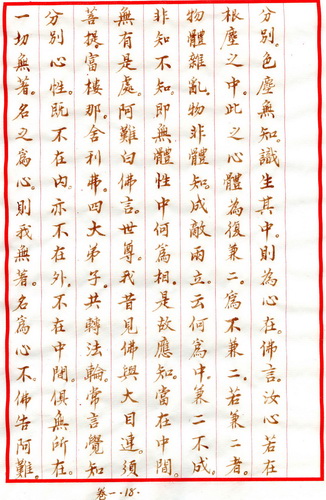 分別。色塵無知。識生其中。則為心在。佛言。汝心若在
根塵之中。此之心體為復兼二。為不兼二。若兼二者。
物體雜亂。物非體知。成敵兩立。云何為中。兼二不成。
非知不知。即無體性。中何為相。是故應知。當在中間。
無有是處。阿難白佛言。世尊。我昔見佛與大目連。須
菩提富樓那。舍利弗。四大弟子。共轉法輪。常言覺知
分別心性。既不在內。亦不在外。不在中間。俱無所在。
一切無著。名之為心。則我無著。名為心不。佛告阿難。
卷一.18.